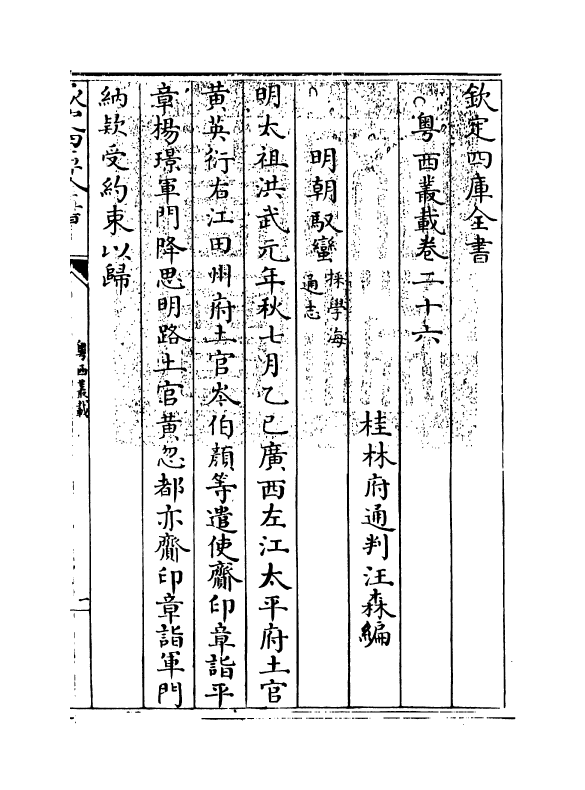 欽定四庫全書
粵西叢載卷二十六
桂林府通判汪森編
明朝馭蠻採學海
通志
明太祖洪武元年秋七月乙巳廣西左江太平府土官
黃英衍右江田州府土官岑伯顔等遣使齎印章詣平
章楊璟軍門降思明路土官黃忽都亦齎印章詣軍門
納欵受約束以歸
粵西叢載